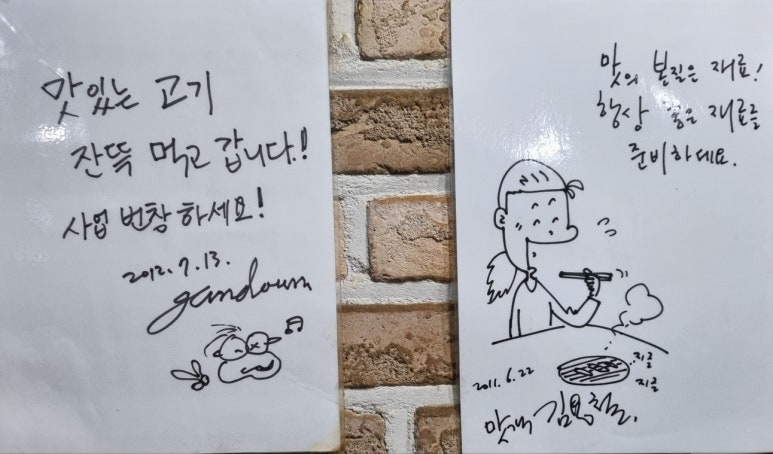 맛있는 고기
잔뜩 먹고 갑니다.!
사업 번창 하세요!
2012. 7. 13.
맛의 본질은 재료!
항상 좋은 재료를
준비하세요.
지글
지글
2011. 6. 22